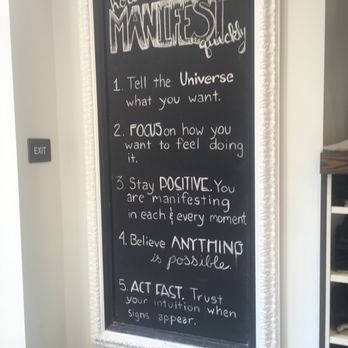 how
MANIFEST
quickly
1. Tell the Universe
what you want.
2. FOCUS on how you
want to feel doing
it.
3. Stay POSITIVE. You
are manifesting
in each & every moment
4. Believe ANYTHING
is possible.
5. ACT FAST. Trust
your intuition when
signs appear.
EXIT